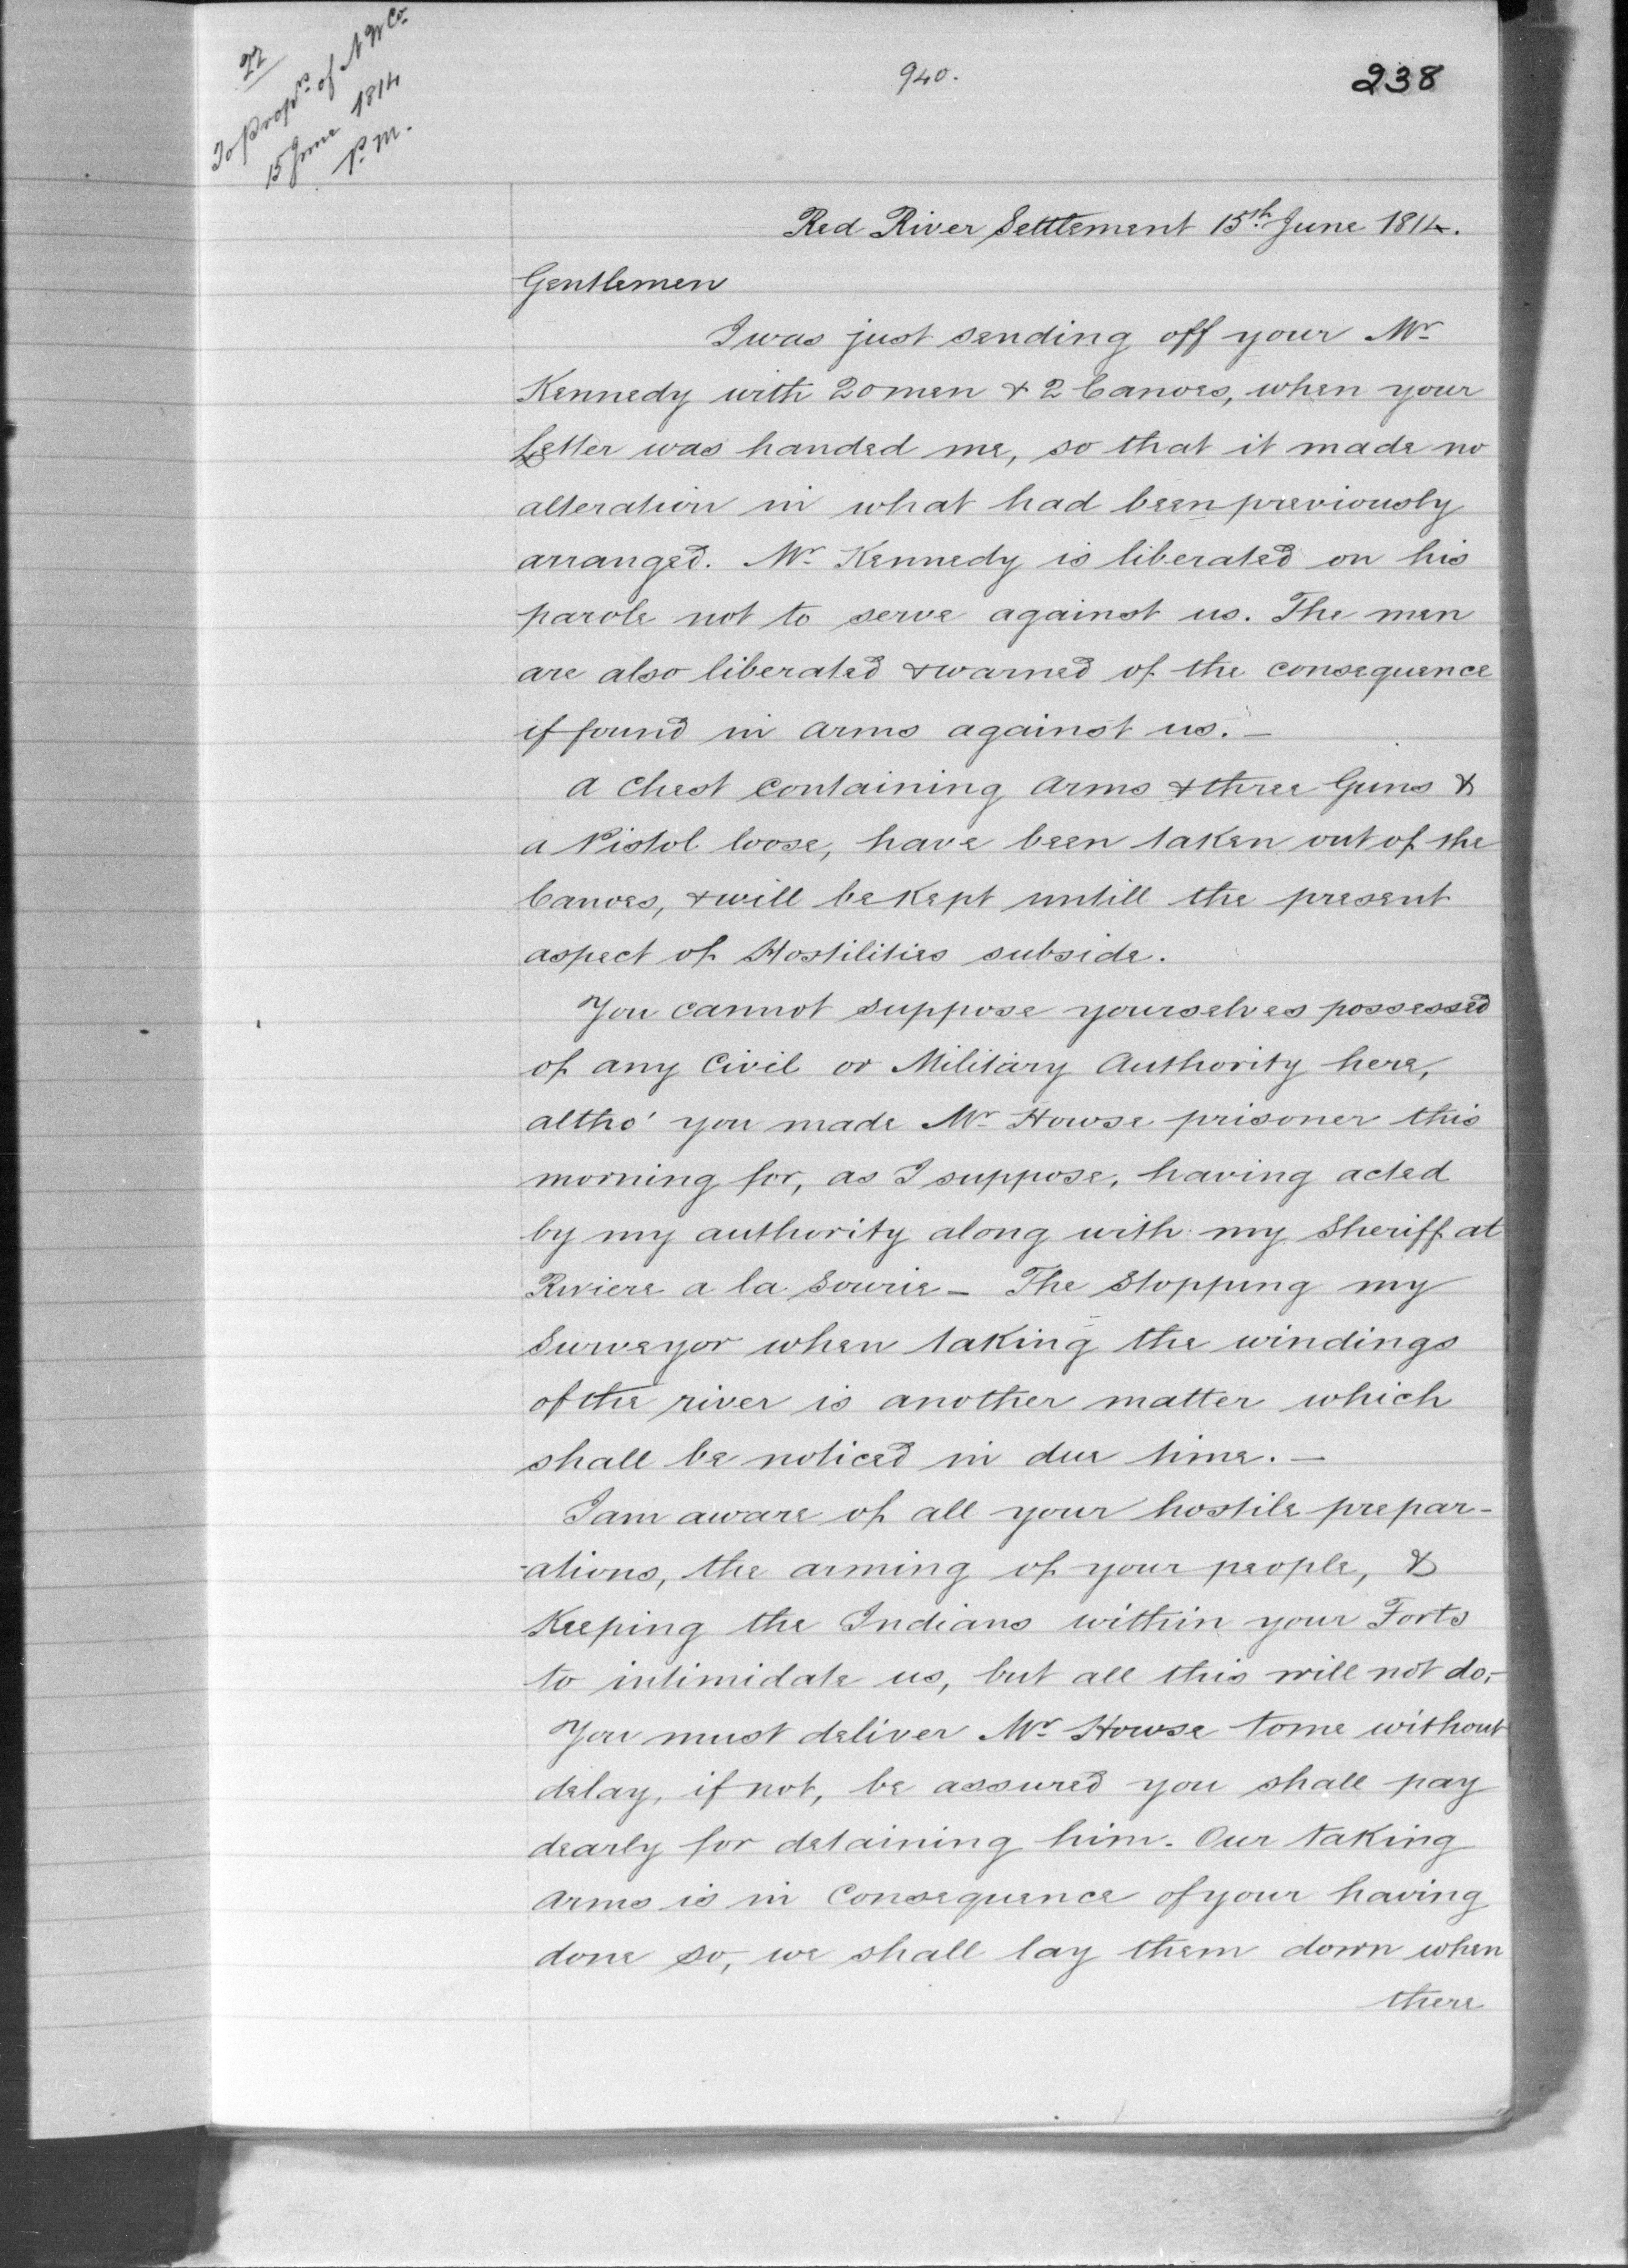 22
To Prop.rs of N W Co.
15 June 1814
P. M.
940.
238
Red River Settlement 15th June 1814.
Gentlemen
I was just sending off your Mr
Kennedy with 20 men & 2 Canoes, when your
Letter was handed me, so that it made no
alteration in what had been previously
arranged. Mr Kennedy is liberated on his
parole not to serve against us. The men
are also liberated & warned of the consequence
if found in arms against us. –
A Chest Containing Arms & three Guns &
a Pistol loose, have been taken out of the
Canoes, & will be kept untill the present
aspect of Hostilities subside.
You cannot suppose yourselves possessed
of any Civil or Military Authority here,
altho' you made Mr Howse prisoner this
morning for, as I suppose, having acted
by my authority along with my Sheriff at
Riviere a la Sourie – The Stopping my
Surveyor when taking the windings
of the river is another matter which
shall be noticed in due time. –
I am aware of all your hostile prepar-
-ations, the arming of your people, &
Keeping the Indians within your Forts
to intimidate us, but all this will not do, –
You must deliver Mr Howse to me without
delay, if not, be assured you shall pay
dearly for detaining him. Our taking
Arms is in Consequence of your having
done so, we shall lay them down when
there